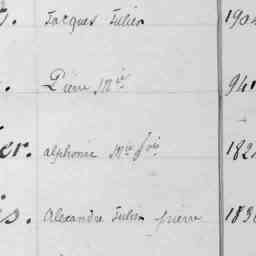 Jacques Julien 190
Pierre M.ie 94
er. alphonse M.ie fois 182
is. Alexandre Julien pierre 183